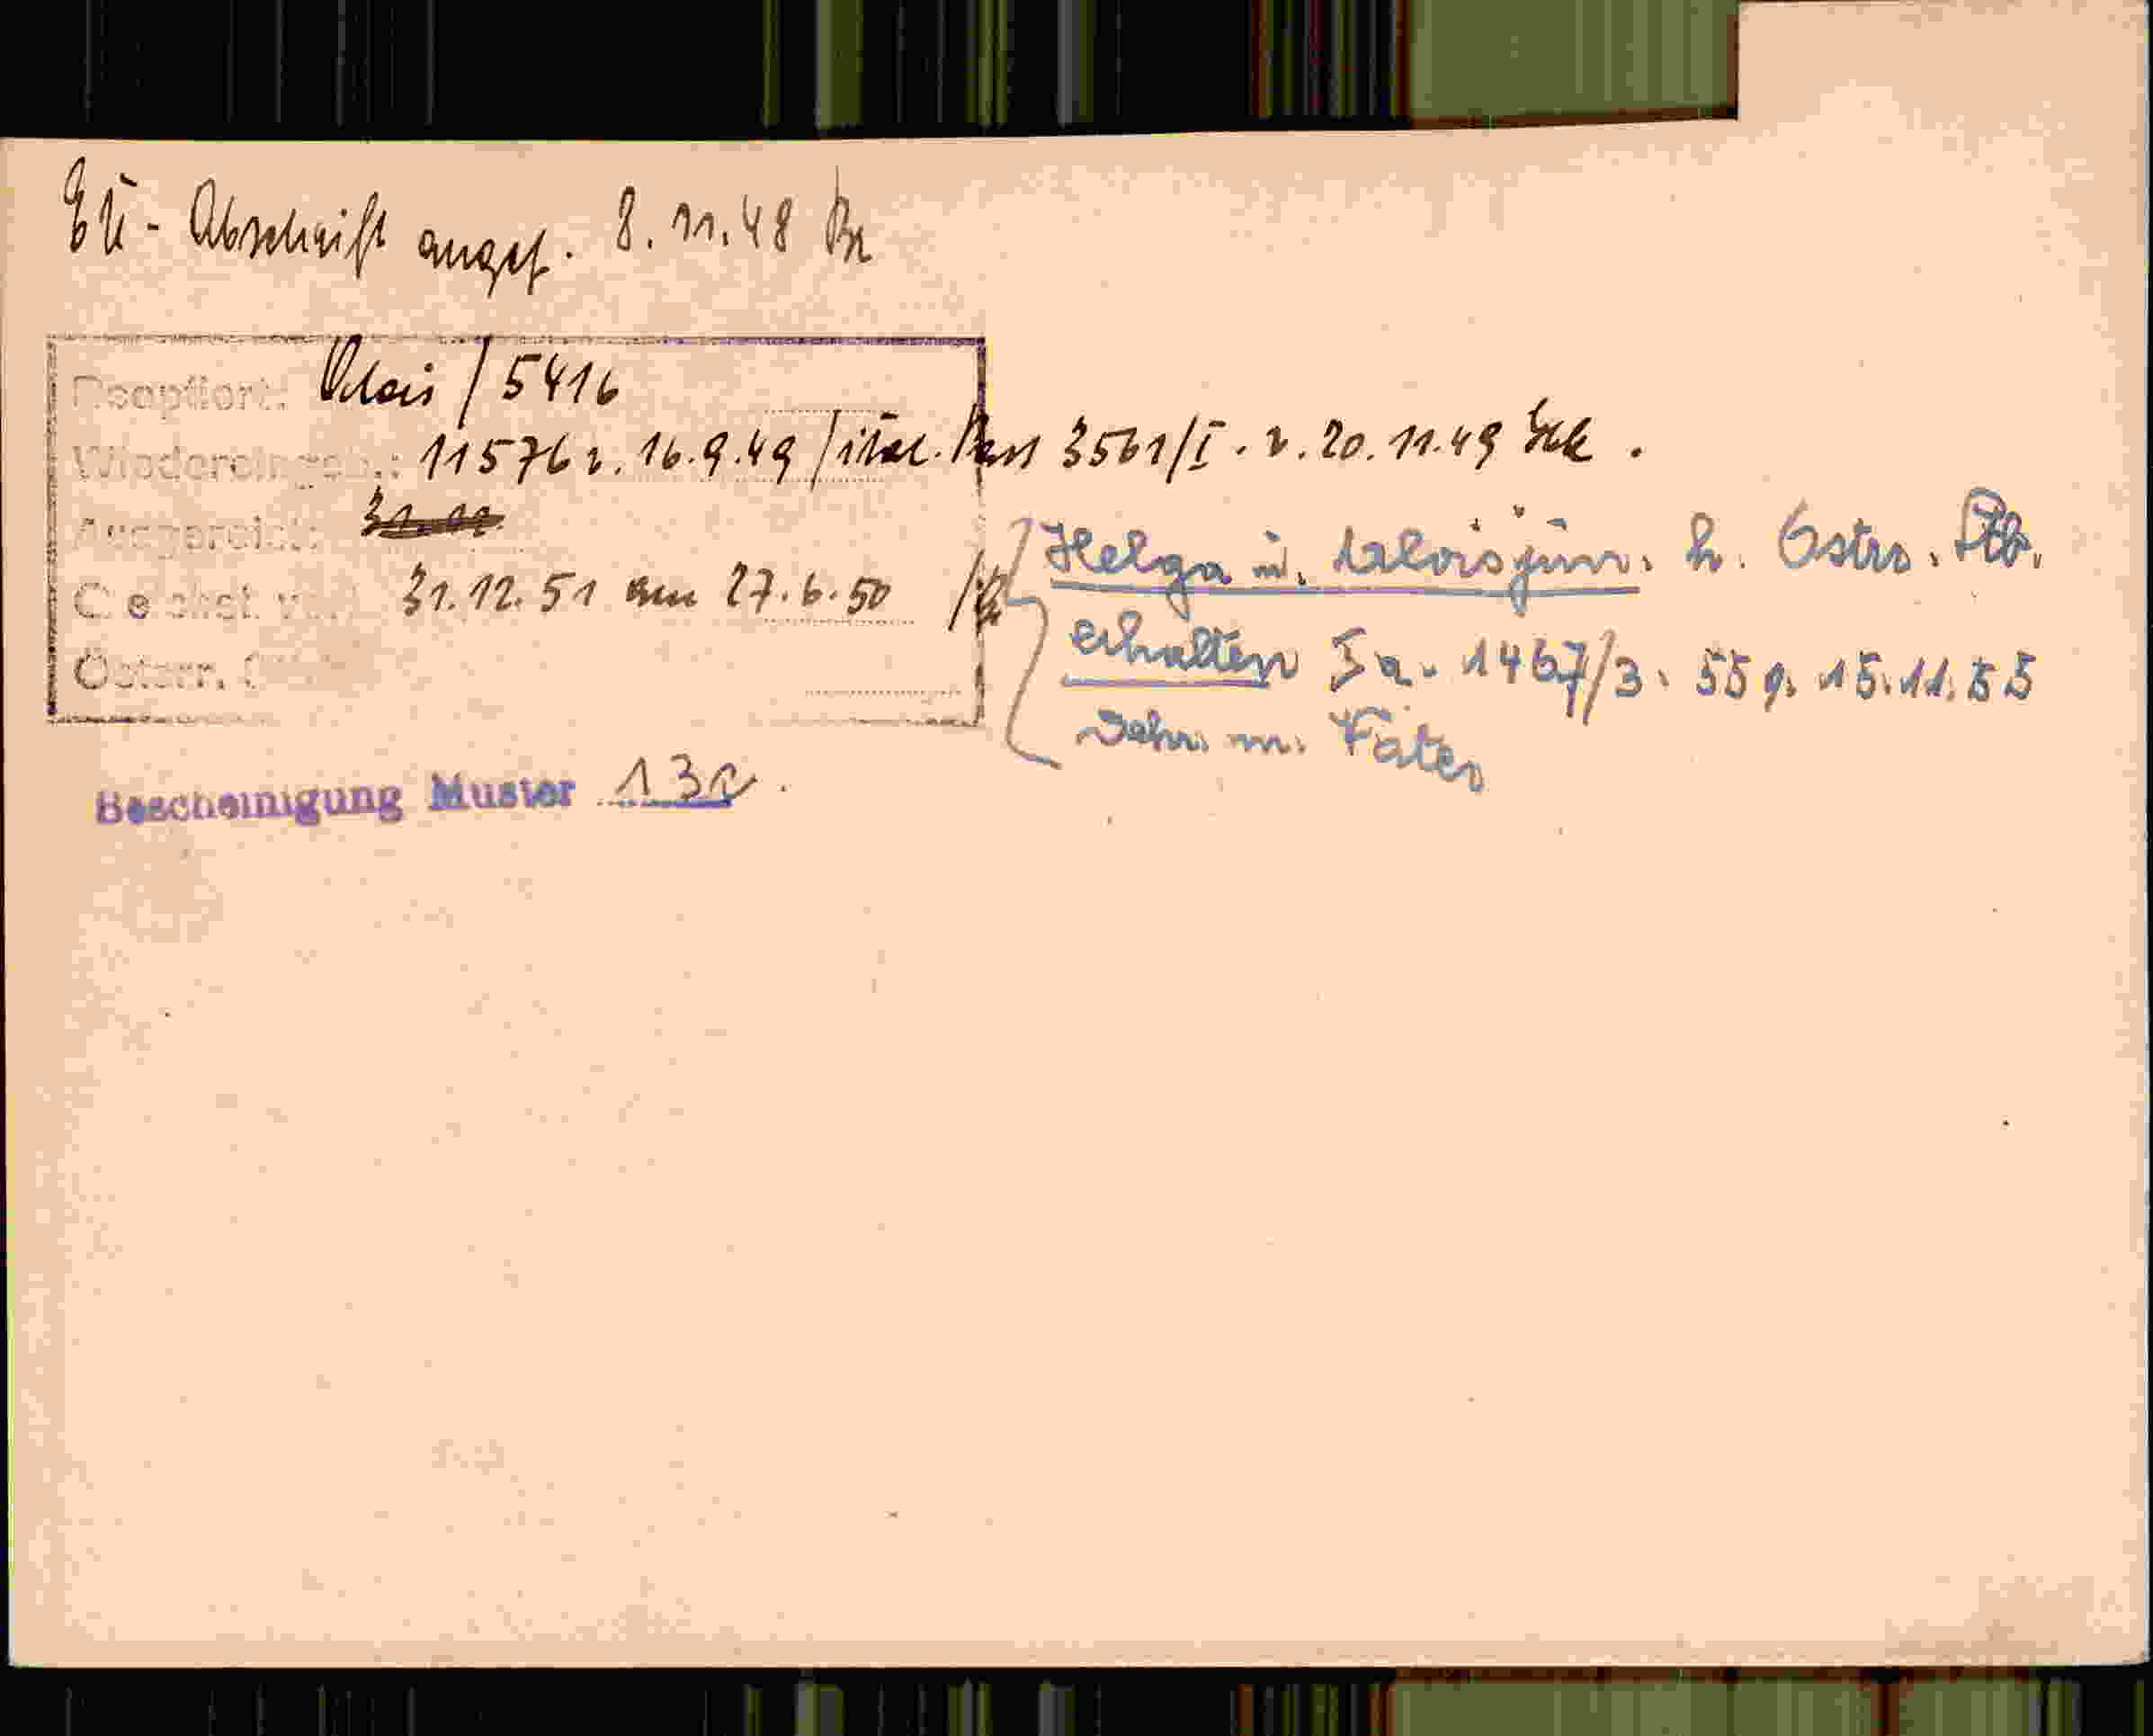 EU - Abschrift angef. 8.11.48 Br
Reoptiert: Alois / 5416
Wiedereingeb.: 11576 v. 16.9.49 / ital. Pass 3561/I. v. 20.11.49
Ausgereist:
Gleichst. v. 31.12.51 am 27.6.50
Österr.
Helga u. Alois jun. h. Östro. Stb.
erhalten Ia. 1467/3. 55 g. 15.11.55
m. Vater
Bescheinigung Muster 13a.